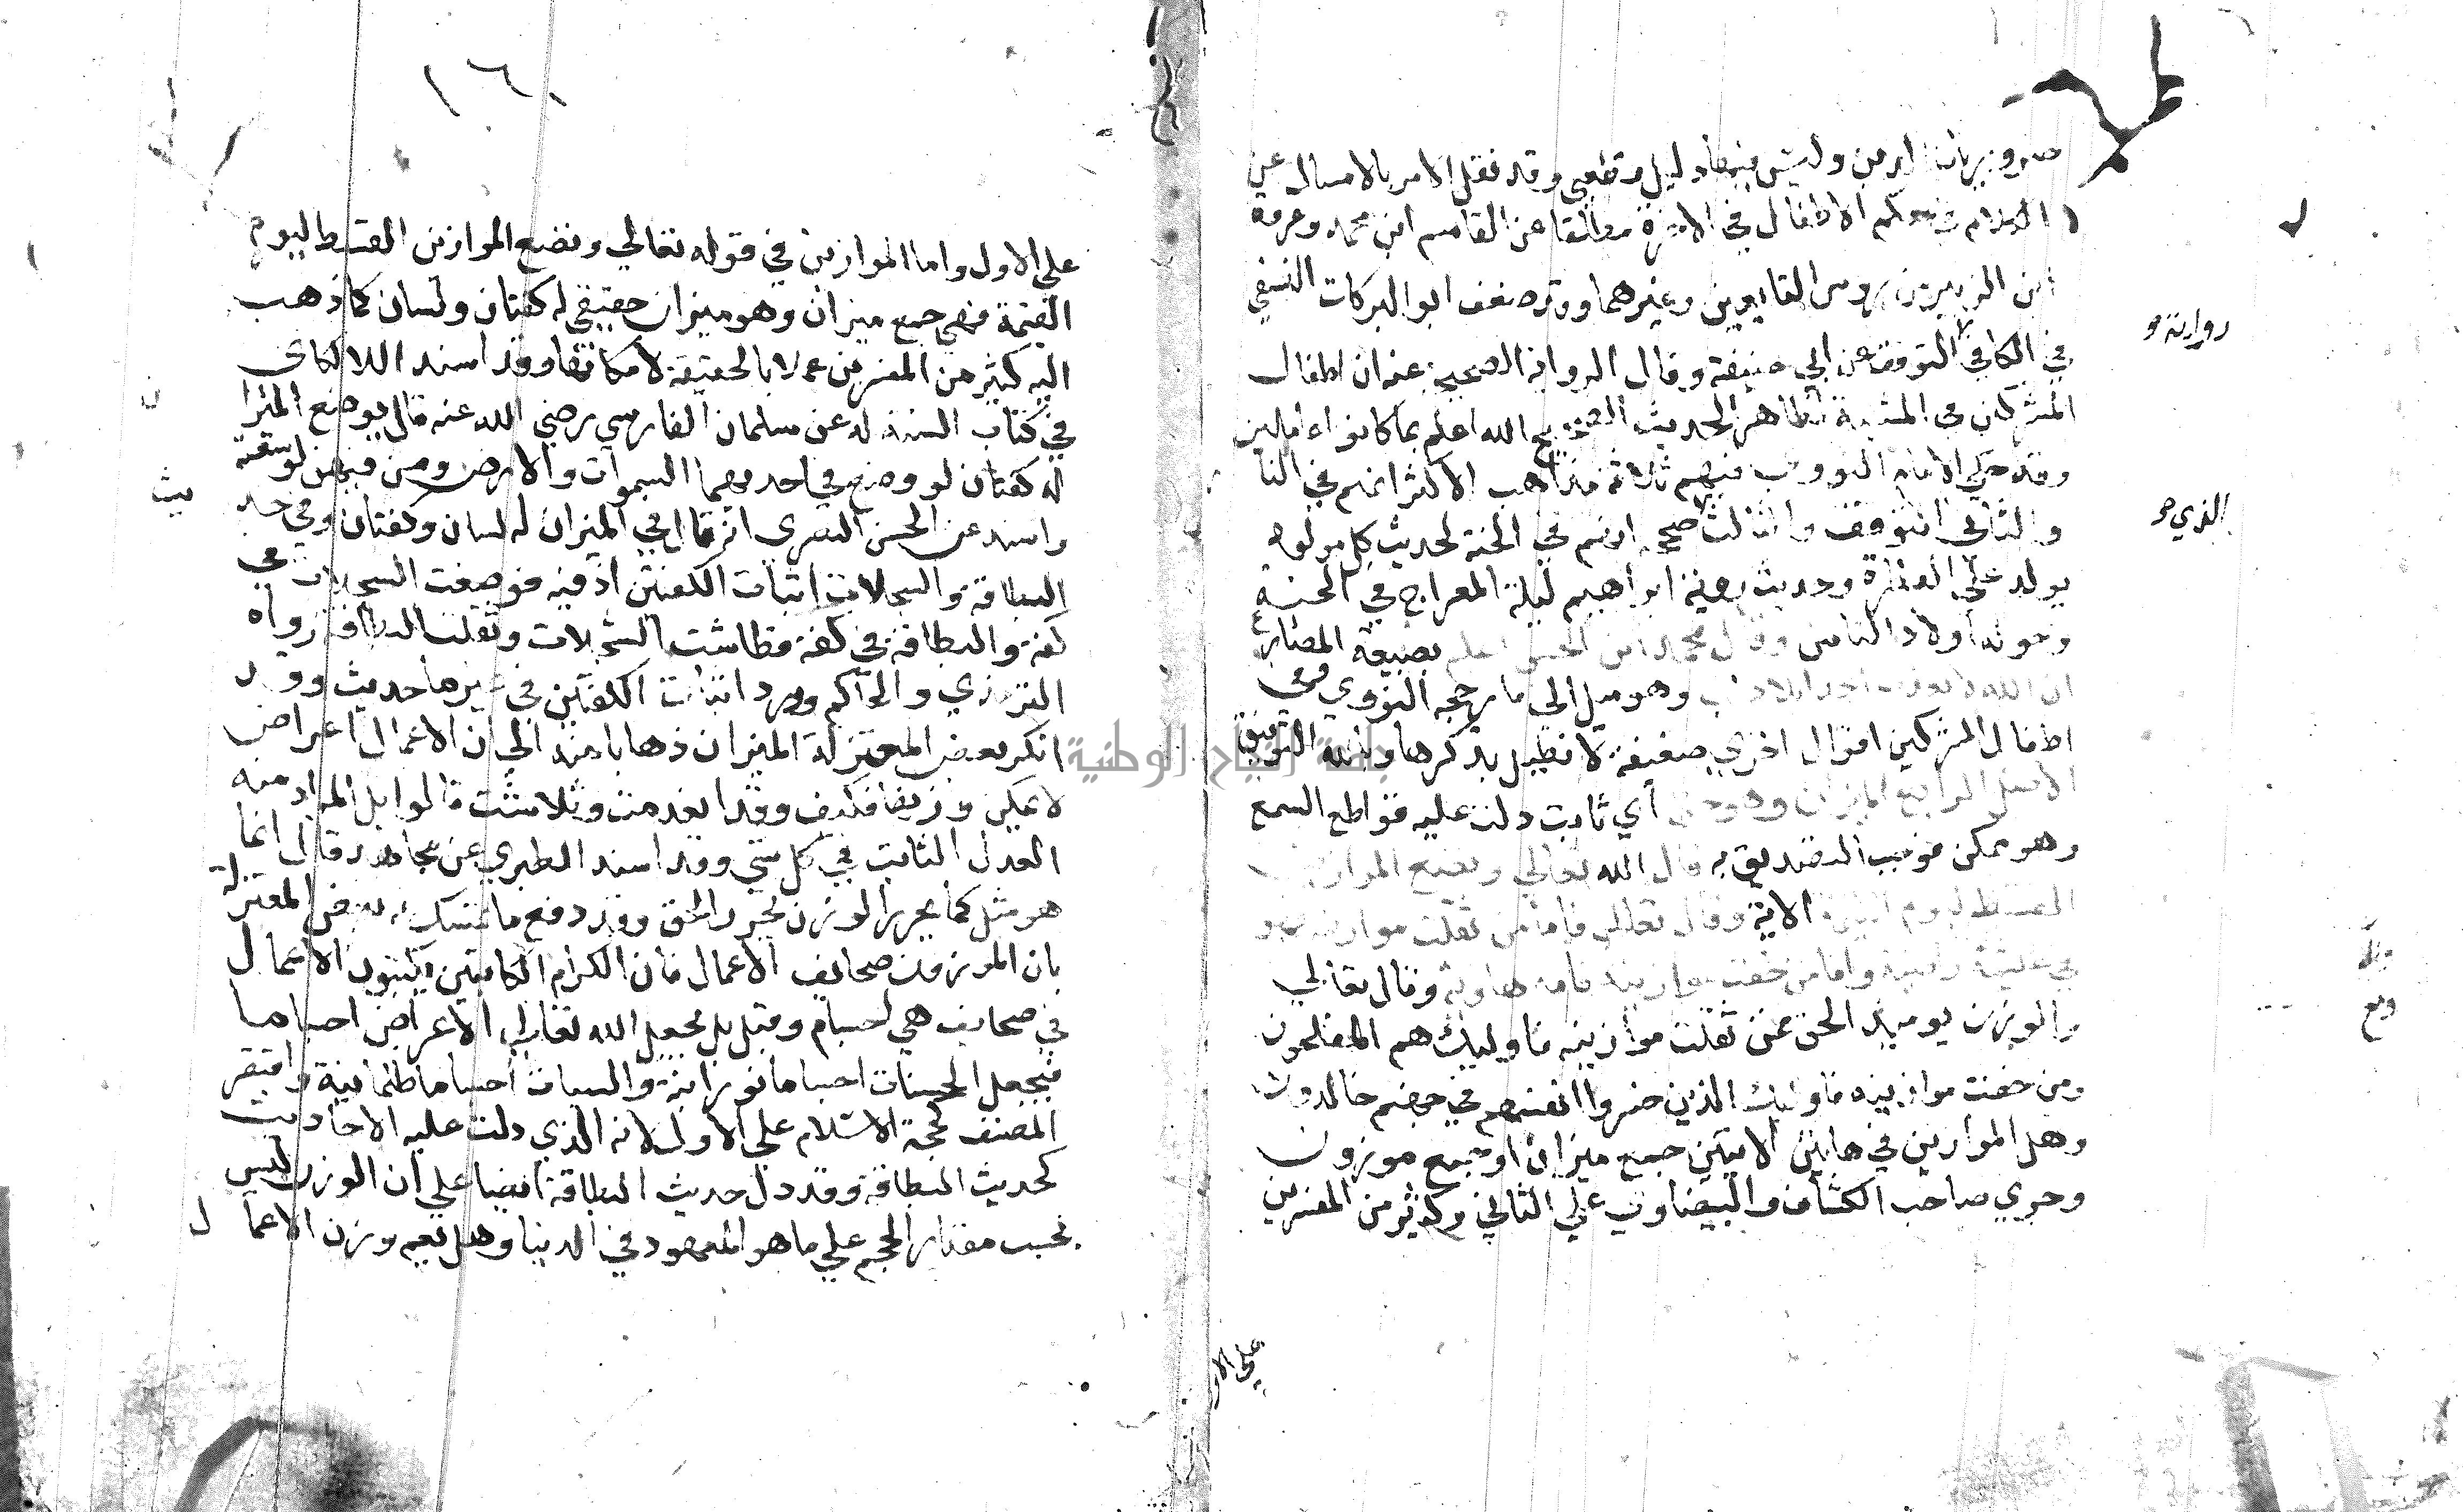 ضروريات الدين وليس فيها دليل قطعي وقد نقل الامر بالامساك عن
الكلام في حكم الاطفال في الاخرة مطلقا عن القاسم ابن محمد وعروة
ابن الزبير من روس التابعين وغيرهما وقد ضعف ابو البركات النسفي
رواية
في الكافي التوقف عن ابي حنيفة وقال الرواية الصحيحة عنه ان اطفال
المشركين في المشية لظاهر الحديث الصحيح الله اعلم بما كانوا عاملين
وقد حكي الامام النووي فيهم ثلاثة مذاهب الاكثر انهم في النا
والثاني التوقف والثالث صحح انهم في الجنة لحديث كل مولود
الذي هو
يولد علي الفطرة وحديث روية ابراهيم ليلة المعراج في الجنة
وحوله اولاد الناس وقال محمد ابن الحسن اعلم بصيغة المضارع
ان الله لا يعذب احدا بلا ذنب وهو ميل الي ما رجحه النووي وفي
اطفال المشركين اقوال اخري ضعيفة لا نطيل بذكرها وبالله التوفيق
الاصل الرابع الميزان وهو حق اي ثابت دلت عليه قواطع السمع
وهو ممكن فوجب التصديق به قال الله تعالي ونضع الموازين
القسط ليوم القيمة الاية وقال تعالي فاما من ثقلت موازينه فهو
في عيشة راضية واما من خفت موازينه فامه هاوية وقال تعالي
والوزن يوميذ الحق فمن ثقلت موازينه فاوليك هم المفلحون
ومن خفت موازينه فاوليك الذين خسروا انفسهم في جهنم خالدون
وهل الموازين في هاتين الايتين جمع ميزان او جمع موزون
وجري صاحب الكشاف والبيضاوي علي الثاني وكثير من المفسرين
علي الاو
١٦٠
علي الاول واما الموازين في قوله تعالي ونضع الموازين القسط ليوم
القيمة فهي جمع ميزان وهو ميزان حقيقي له كفتان ولسان كما ذهب
اليه كثير من المفسرين عملا بالحقيقة لامكانها وقد اسند اللالكاي
في كتاب السنة له عن سلمان الفارسي رضي الله عنه قال يوضع الميزا ن
له كفتان لو وضع في احديهما السموات والارض ومن فيهن لوسعته
واسند عن الحسن البصري انه قال في الميزان له لسان وكفتان وفي حد يث
البطاقة والسجلات اثبات الكفتين اذ فيه فوضعت السجلات في
كفة والبطاقة في كفة فطاشت السجلات وثقلت البطاقة رواه
الترمذي والحاكم وورد اثبات الكفتين في غيرها حديث وقد
انكر بعض المعتزلة الميزان ذهابا منهم الي ان الاعمال اعراض
لا يمكن وزنها فكيف وقد انعدمت وتلاشت قالوا بل المراد منه
العدل الثابت في كل شي وقد اسند الطبري عن مجاهد قال انما
هو مثل كما يحرر الوزن يحرر الحق وقد دفع ما تمسك به بعض المعتزلة
بان الموزون صحائف الاعمال فان الكرام الكاتبين يكتبون الاعمال
في صحايف هي اجسام وقيل بل يجعل الله تعالي الاعراض اجساما
فيجعل الحسنات اجساما نورانية والسيات اجساما ظلمانية واقتصر
المصنف كحجة الاسلام علي الاول لانه الذي دلت عليه الاحاديث
كحديث البطاقة وقد دل حديث البطاقة ايضا علي ان الوزن ليس
بحسب مقدار الحجم علي ما هو المعهود في الدنيا وهل نعم وزن الاعما ل
جامعة النجاح الوطنية